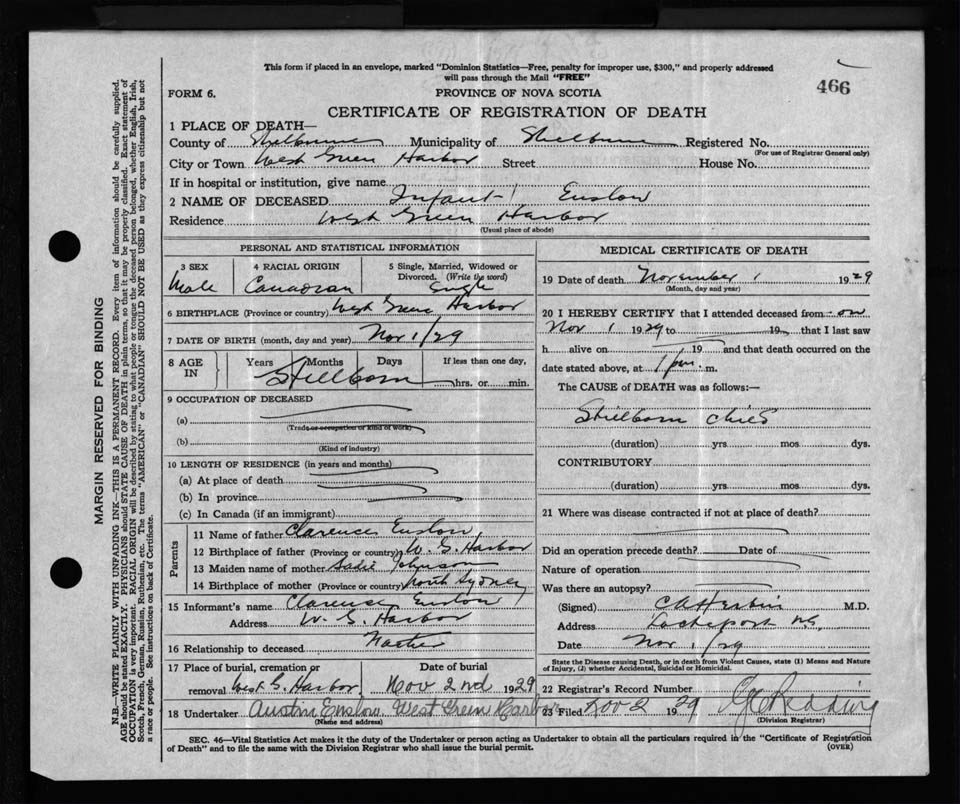 This form if placed in an envelope, marked "Dominion Statistics—Free, penalty for improper use, $300," and properly addressed
will pass through the Mail "FREE"
466
FORM 6.
PROVINCE OF NOVA SCOTIA
CERTIFICATE OF REGISTRATION OF DEATH
1 PLACE OF DEATH—
County of Shelburne Municipality of Shelburne Registered No.
(For use of Registrar General only)
City or Town West Green Harbor Street House No.
If in hospital or institution, give name
2 NAME OF DECEASED Infant Enslow
Residence West Green Harbor
(Usual place of abode)
PERSONAL AND STATISTICAL INFORMATION
3 SEX 4 RACIAL ORIGIN 5 Single, Married, Widowed or
Divorced. (Write the word)
Male Canadian Single
6 BIRTHPLACE (Province or country) West Green Harbor
7 DATE OF BIRTH (month, day and year) Nov 1/29
8 AGE IN Years Months Days If less than one day,
Stillborn hrs. or min.
9 OCCUPATION OF DECEASED
(a)
(Trade or occupation or kind of work)
(b)
(Kind of industry)
10 LENGTH OF RESIDENCE (in years and months)
(a) At place of death
(b) In province
(c) In Canada (if an immigrant)
Parents
11 Name of father Clarence Enslow
12 Birthplace of father (Province or country) W. G. Harbor
13 Maiden name of mother Sadie Johnson
14 Birthplace of mother (Province or country) North Sydney
15 Informant's name Clarence Enslow
Address W. G. Harbor
16 Relationship to deceased Father
17 Place of burial, cremation or Date of burial
removal West G. Harbor Nov 2nd 1929
18 Undertaker Austin Enslow West Green Harbor
(Name and address)
MEDICAL CERTIFICATE OF DEATH
19 Date of death November 1 1929
(Month, day and year)
20 I HEREBY CERTIFY that I attended deceased from on
Nov 1 1929 to 19 that I last saw
h alive on 19 and that death occurred on the
date stated above, at 1 p.m.
The CAUSE of DEATH was as follows:—
Stillborn child
(duration) yrs mos dys.
CONTRIBUTORY
(duration) yrs mos dys.
21 Where was disease contracted if not at place of death?
Did an operation precede death? Date of
Nature of operation
Was there an autopsy?
(Signed) C A Herbin M.D.
Address Lockeport NS.
Date Nov 1/29
State the Disease causing Death, or in death from Violent Causes, state (1) Means and Nature
of Injury, (2) whether Accidental, Suicidal or Homicidal.
22 Registrar's Record Number
23 Filed Nov 2 1929 Redding
(Division Registrar)
SEC. 46—Vital Statistics Act makes it the duty of the Undertaker or person acting as Undertaker to obtain all the particulars required in the "Certificate of Registration
of Death" and to file the same with the Division Registrar who shall issue the burial permit.
(OVER)
MARGIN RESERVED FOR BINDING
N.B.—WRITE PLAINLY WITH UNFADING INK—THIS IS A PERMANENT RECORD. Every item of information should be carefully supplied.
AGE should be stated EXACTLY. PHYSICIANS should STATE CAUSE OF DEATH in plain terms, so that it may be properly classified. Exact statement of
OCCUPATION is very important. RACIAL ORIGIN will be described by stating to what people or tongue the deceased person belonged, whether English, Irish,
Scotch, French, German, Russian, Ruthenian, etc. The terms "AMERICAN" or "CANADIAN" SHOULD NOT BE USED as they express citizenship but not
a race or people. See instructions on back of Certificate.